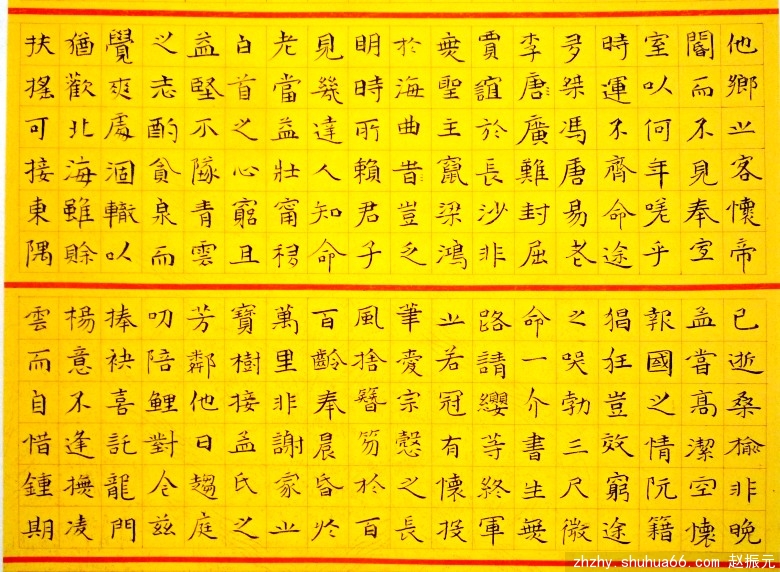 他鄉之客懷帝
閽而不見奉宣
室以何年嗟乎
時運不齊命途
多桀馮唐易老
李唐廣難封屈
賈誼於長沙非
無聖主竄梁鴻
於海曲昔豈乏
明時所賴君子
見幾達人知命
老當益壯甯移
白首之心窮且
益堅不隊青雲
之志酌貪泉而
覺爽處涸轍以
猶歡北海雖賒
扶搖可接東隅
已逝桑榆非晚
孟嘗高潔空懷
報國之情阮籍
猖狂豈效窮途
之哭勃三尺微
命一介書生無
路請纓等終軍
之若冠有懷投
筆愛宗慤之長
風捨簪笏於百
百齡奉晨昏於
萬里非謝家之
寶樹接孟氏之
芳鄰他日趨庭
叨陪鯉對今茲
捧袂喜託龍門
楊意不逢撫凌
雲而自惜鍾期
zhzhy.shuhua66.com 赵振元